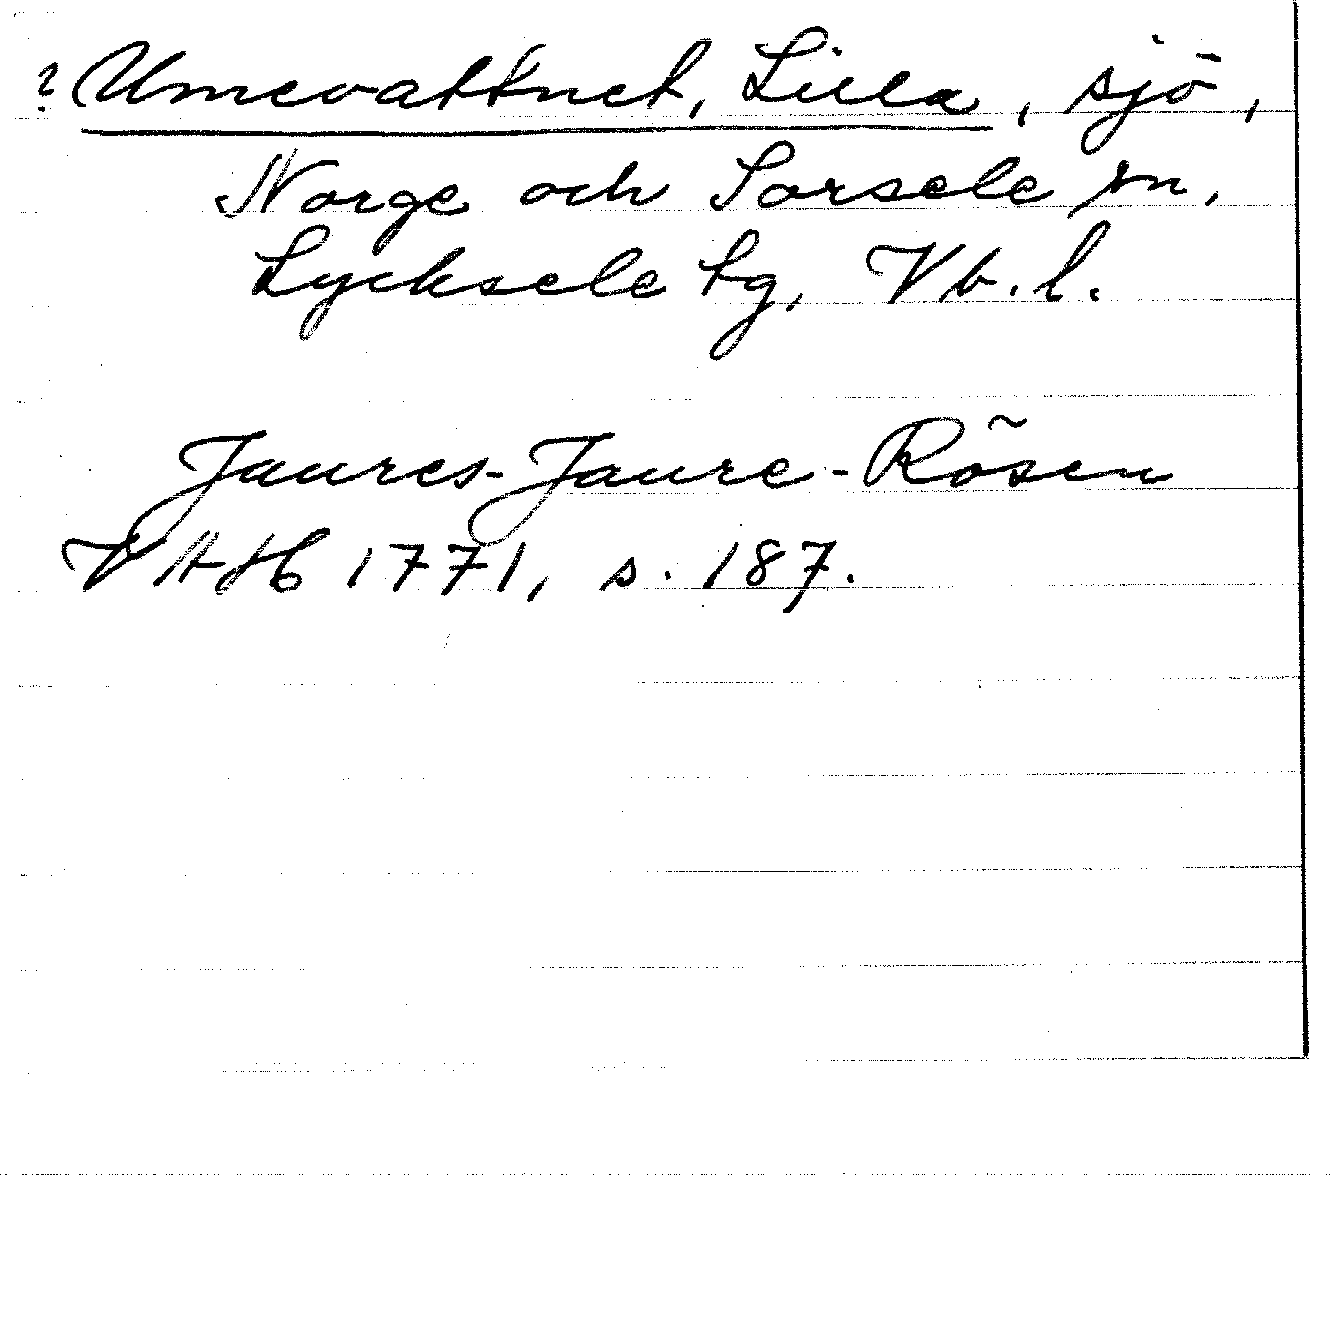 ? Umevattnet, Lilla, sjö,
Norge och Sorsele sn,
Lycksele tg, Vb. l.
Jaures-Jaure-Rösen
VAH 1771, s. 187.